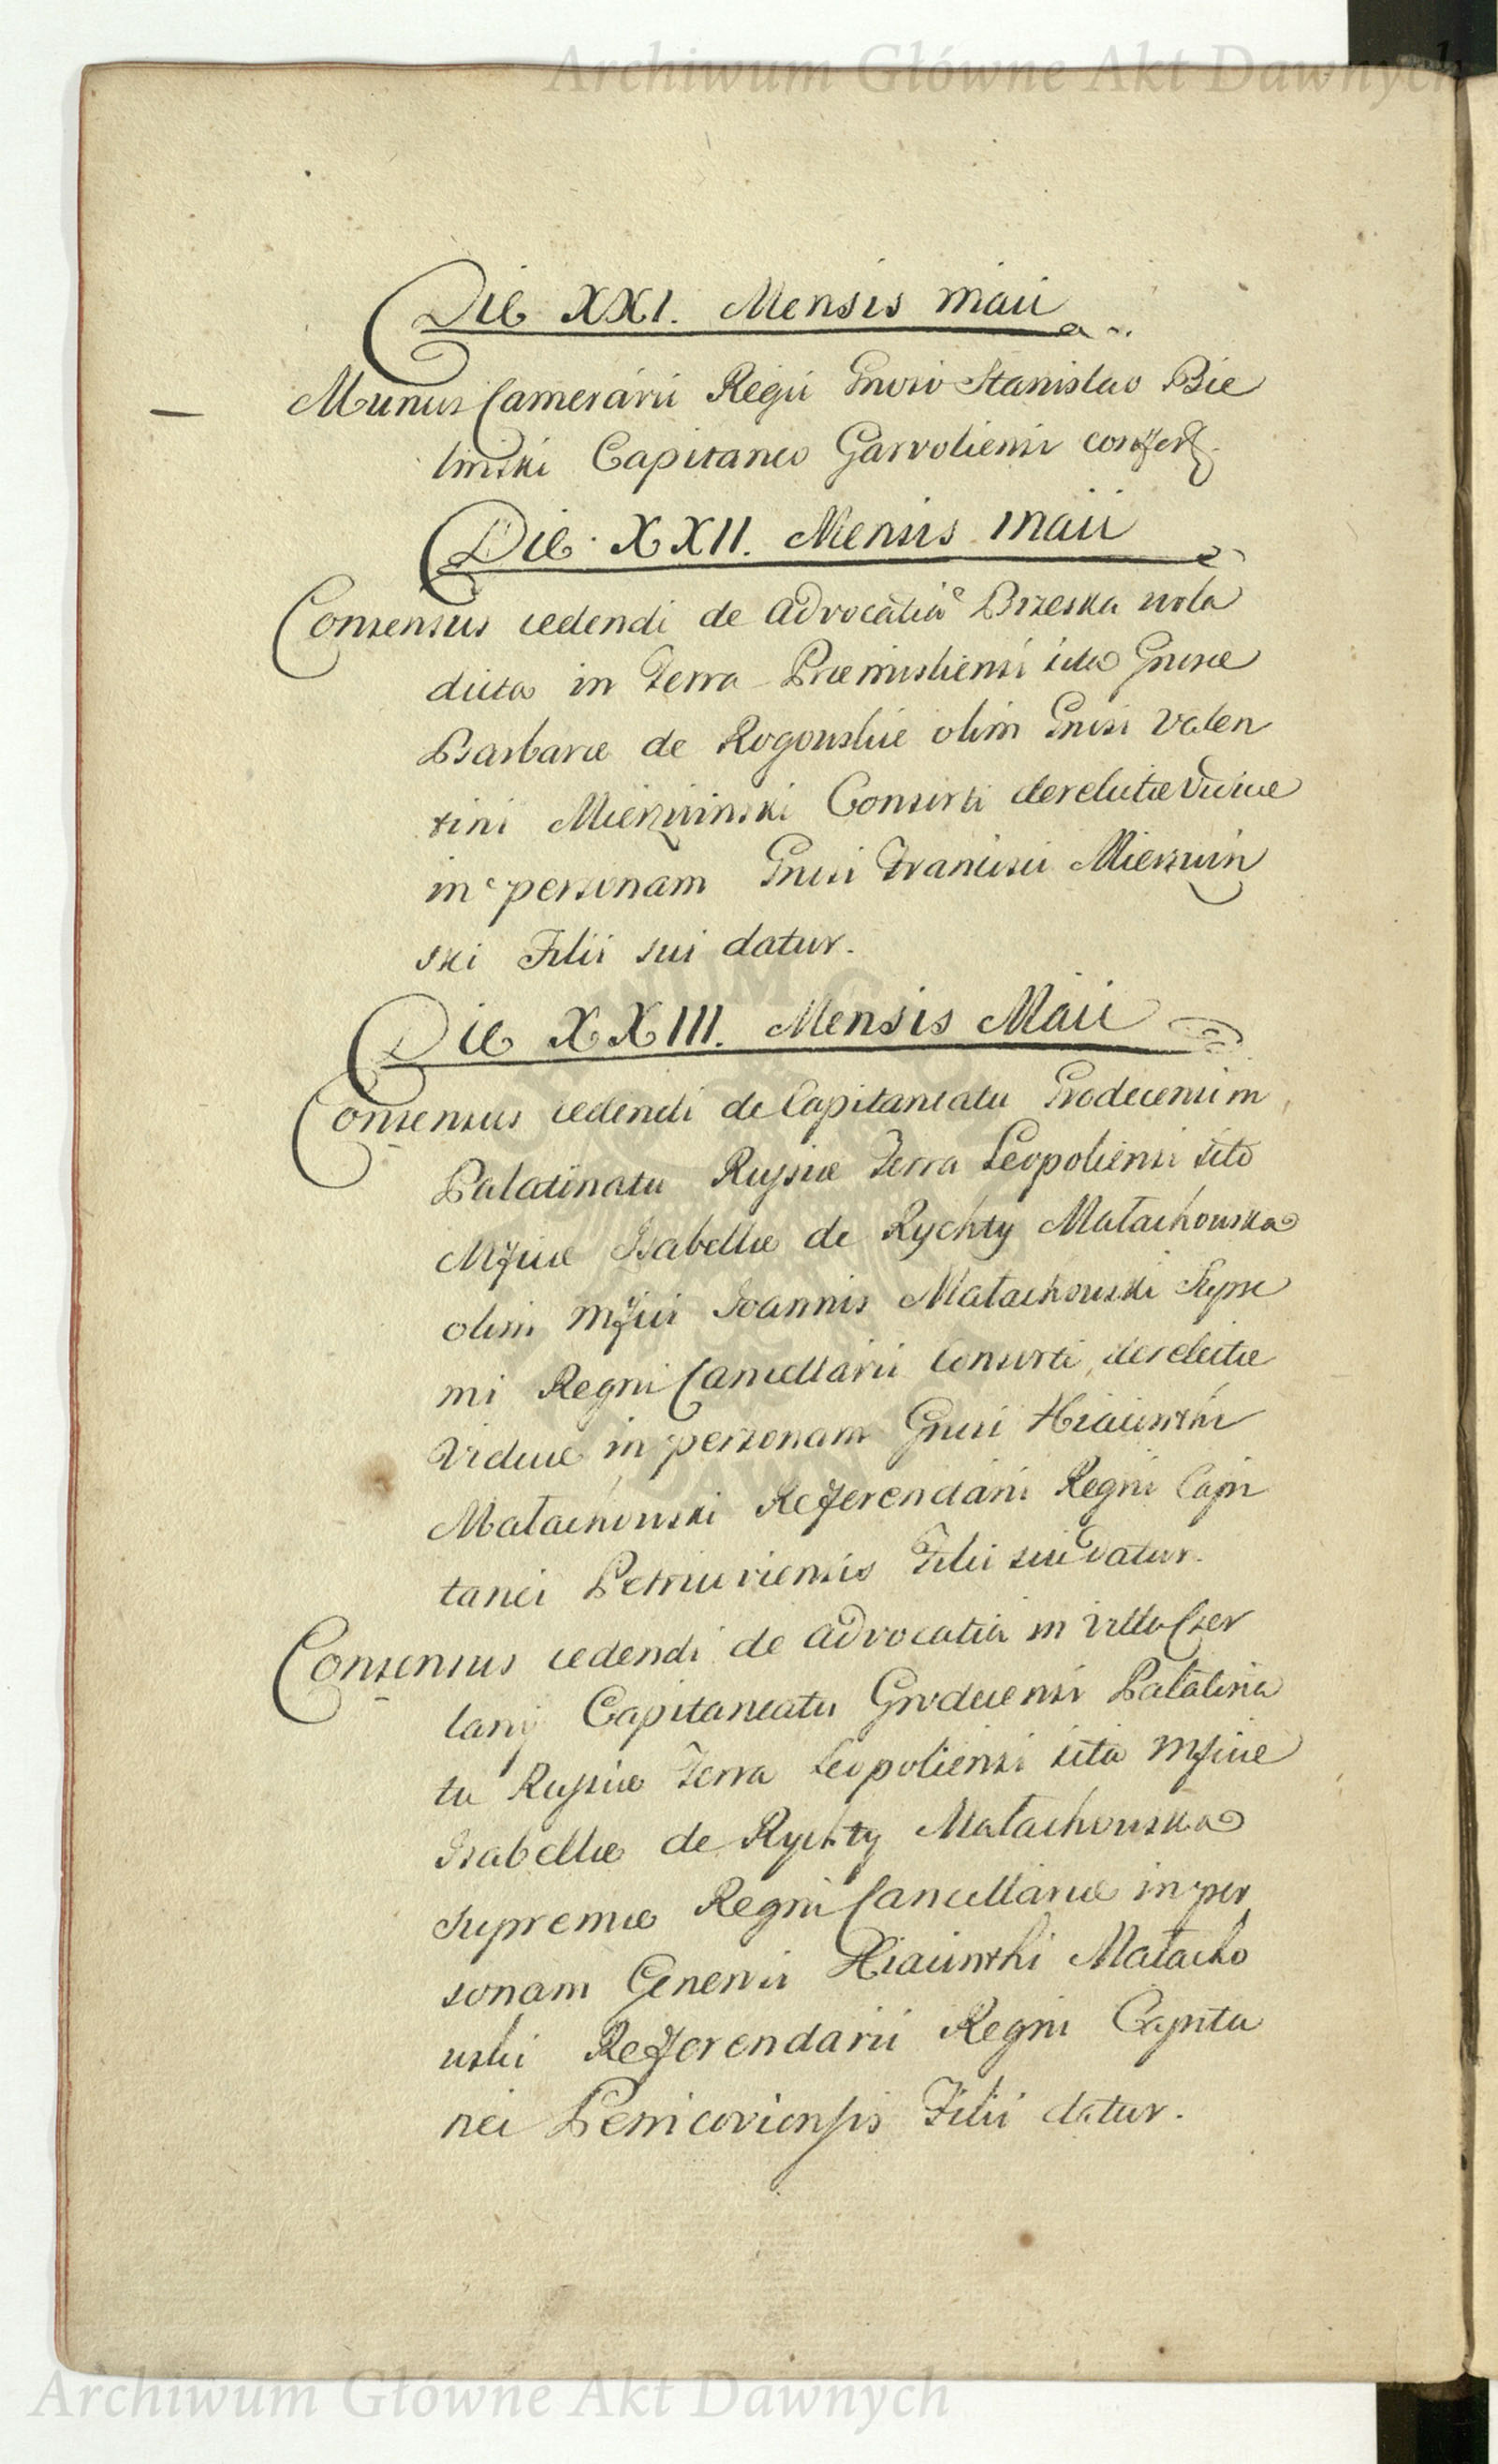 Archiwum Główne Akt Dawnych
Die XXI. Mensis maii
Munus Camerarii Regii Gnoso Stanislao Bie
linski Capitaneo Garvoliensi confert.
Die XXII. Mensis maii
Consensus cedendi de advocatia Brzeska wola
dicta in Terra Præmisliensi sita Gnosæ
Barbaræ de Rogowskie olim Gnosi Valen
tini Mierzwinski Consorti derelictæ Viduæ
in personam Gnosi Francisci Mierzwin
ski Filii sui datur.
Die XXIII. Mensis Maii
Consensus cedendi de Capitaneatu Grodecensi in
Palatinatu Russiæ Terra Leopoliensi sito
Mficæ Isabellæ de Rychty Małachowska
olim Mfici Joannis Małachowski Supre
mi Regni Cancellarii Consorti derelictæ
Viduæ in personam Gnosi Hiacinthi
Małachowski Refferendarii Regni Capi
tanei Filii sui datur.
Consensus cedendi de advocatia in villa Czer
lany Capitaneatu Grodecensi Palatina
tu Russiæ Terra Leopoliensi sita Mficæ
Isabellæ de Rychty Małachowska
Supremæ Regni Cancellariæ in per
sonam Generosi Hiacinthi Małacho
wski Refferendarii Regni Capita
nei Filii datur.
Archiwum Główne Akt Dawnych